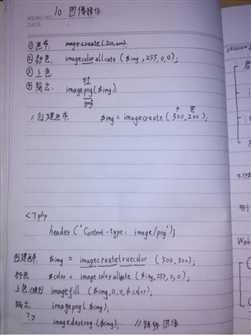 10. 图像操作
① 画布 imagecreate(500,500);
② 颜色 imagecolorallocate ($img,255,0,0);
③ 上色
④ 输出 imagepng($img);
png
jpeg
1. 创建画布 $img = imagecreate (500,200);
宽 高
<?php
header ('Content-type: image/png');
创建画布 $img = imagecreatetruecolor (300,300);
颜色 $color = imagecolorallocate ($img,255,0,0);
上色 imagefill ($img,0,0,$color);
输出 imagepng($img);
?> imagedestroy ($img); //销毁图像